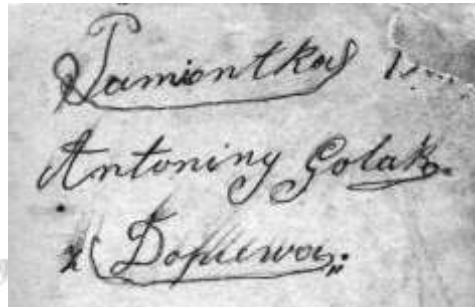 Pamiontka
Antoniny Golak.
z Dopiewa.